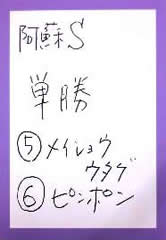 阿蘇S
単勝
⑤メイショウ
ウタゲ
⑥ピンポン